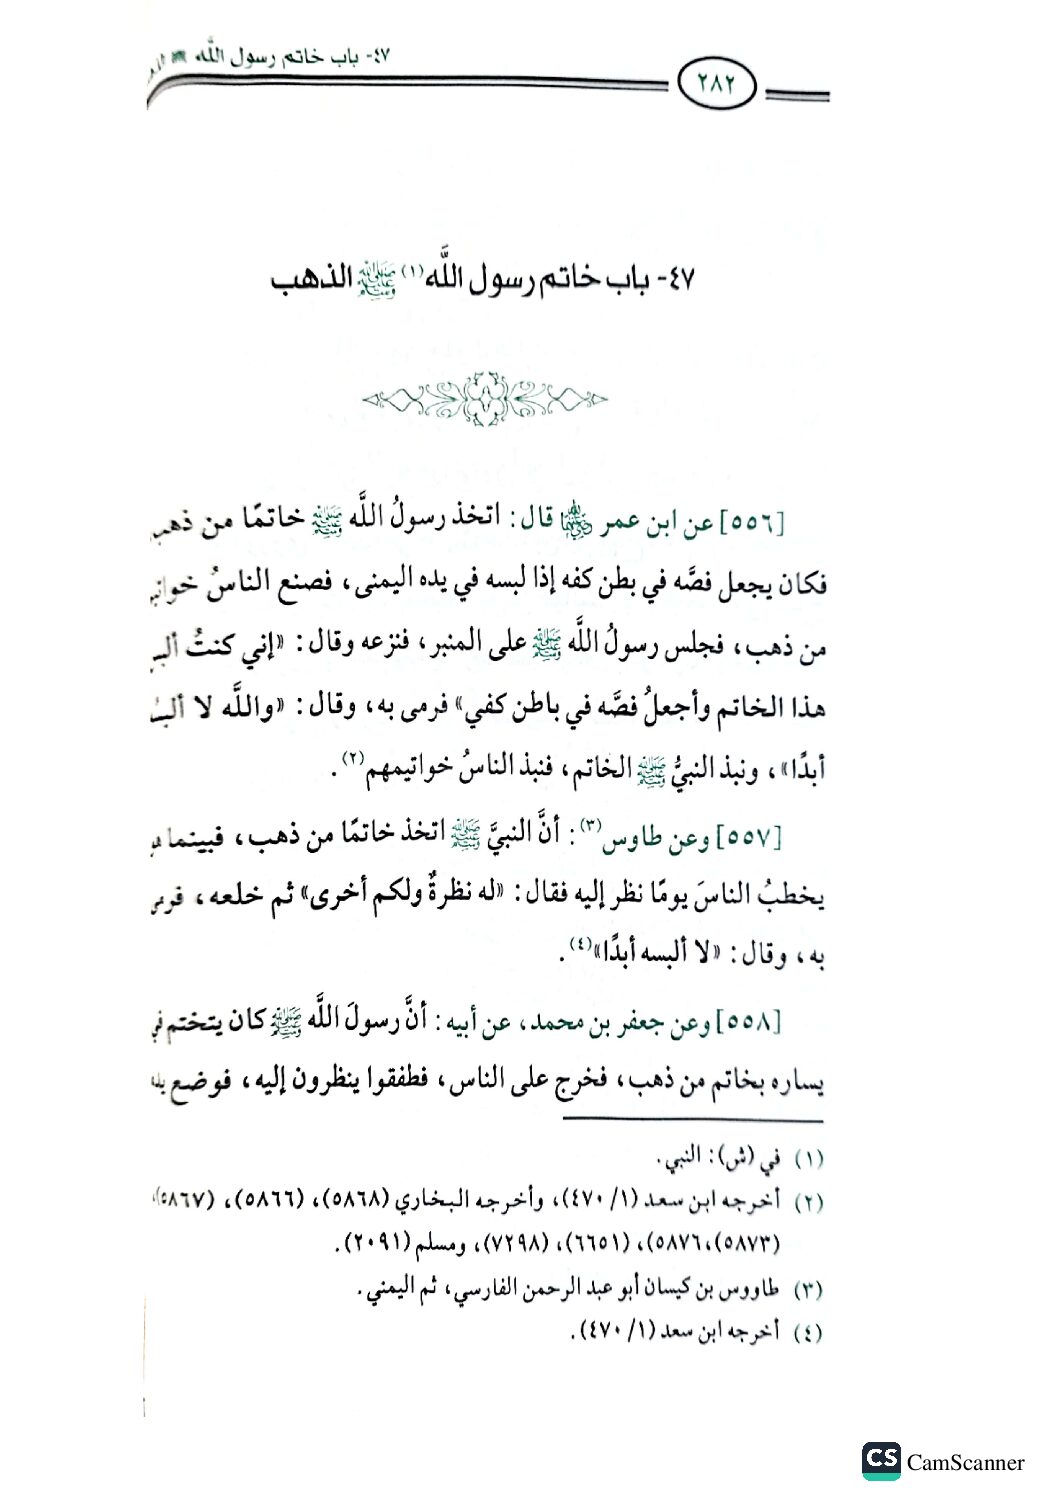 ٤٧- باب خاتم رسول اللَّه ﷺ
٢٨٢
٤٧- باب خاتم رسول اللَّه(١) ﷺ الذهب
[٥٥٦] عن ابن عمر قال: اتخذ رسولُ اللَّه ﷺ خاتمًا من ذهب
فكان يجعل فصَّه في بطن كفه إذا لبسه في يده اليمنى، فصنع الناسُ
من ذهب، فجلس رسولُ اللَّه ﷺ على المنبر، فنزعه وقال: «إني كنتُ
هذا الخاتم وأجعلُ فصَّه في باطن كفي» فرمى به، وقال: «واللَّه لا
أبدًا»، ونبذ النبيُّ ﷺ الخاتم، فنبذ الناسُ خواتيمهم(٢).
[٥٥٧] وعن طاوس(٣): أنَّ النبيَّ ﷺ اتخذ خاتمًا من ذهب، فبينما
يخطبُ الناسَ يومًا نظر إليه فقال: «له نظرةٌ ولكم أخرى» ثم خلعه،
به، وقال: «لا ألبسه أبدًا»(٤).
[٥٥٨] وعن جعفر بن محمد، عن أبيه: أنَّ رسولَ اللَّه ﷺ كان يتختم في
يساره بخاتم من ذهب، فخرج على الناس، فطفقوا ينظرون إليه، فوضع
(١) في (ش): النبي.
(٢) أخرجه ابن سعد (١/ ٤٧٠)، وأخرجه البخاري (٥٨٦٨)، (٥٨٦٦)، (٥٨٦٧)،
(٥٨٧٣)،(٥٨٧٦)، (٦٦٥١)، (٧٢٩٨)، ومسلم (٢٠٩١).
(٣) طاووس بن كيسان أبو عبد الرحمن الفارسي، ثم اليمني.
(٤) أخرجه ابن سعد (١/ ٤٧٠).
CS CamScanner